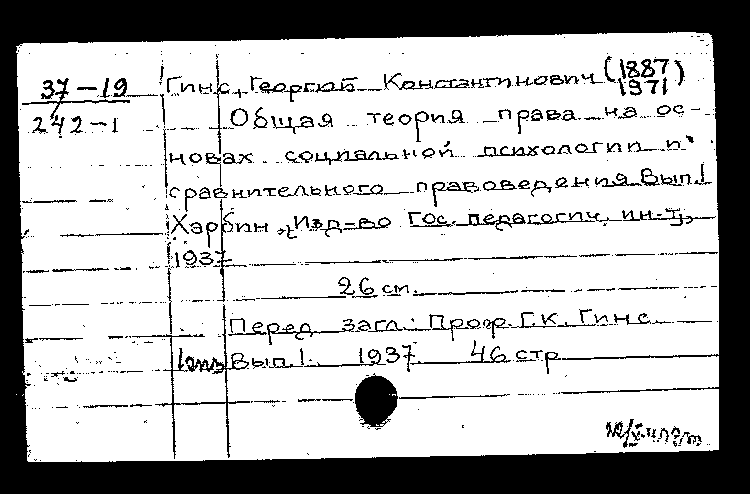 37-19
242-1
Гинс, Георгий Константинович (1887
1971)
Общая теория права на ос-
новах социальной психологии и
сравнительного правоведения. Вып.1
Харбин, Изд-во Гос. педагогич. ин-т,
1937
26 см.
Перед загл.: Проф. Г.К. Гинс.
1экз Вып.1. 1937. 46 стр